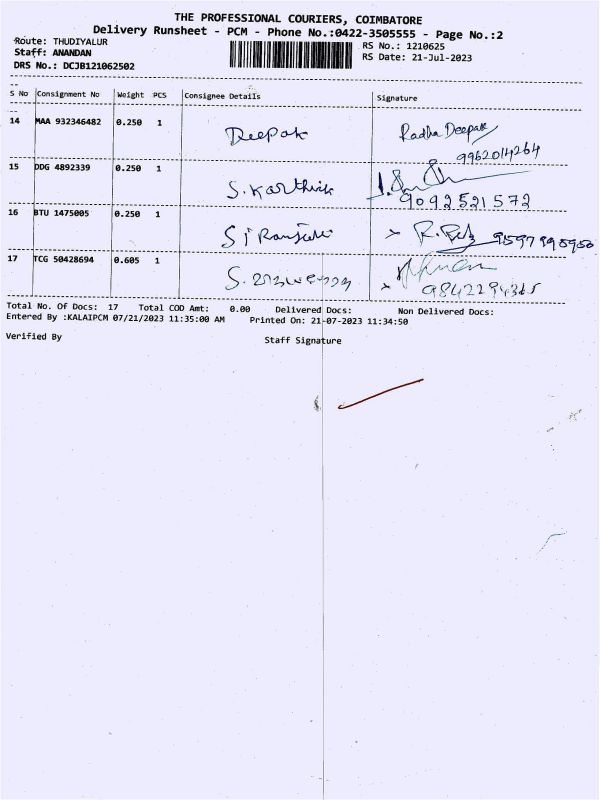 THE PROFESSIONAL COURIERS, COIMBATORE
Delivery Runsheet - PCM - Phone No.:0422-3505555 - Page No.:2
Route: THUDIYALUR
RS No.: 1210625
Staff: ANANDAN
RS Date: 21-Jul-2023
DRS No.: DCJB121062502
S No Consignment No Weight PCS Consignee Details Signature
14 MAA 932346482 0.250 1 Deepak Radha Deepak
9962014264
15 DDG 4892339 0.250 1 S. Karthik
9092521572
16 BTU 1475005 0.250 1
17 TCG 50428694 0.605 1 S.
Total No. Of Docs: 17 Total COD Amt: 0.00 Delivered Docs: Non Delivered Docs:
Entered By :KALAIPCM 07/21/2023 11:35:00 AM Printed On: 21-07-2023 11:34:50
Verified By Staff Signature